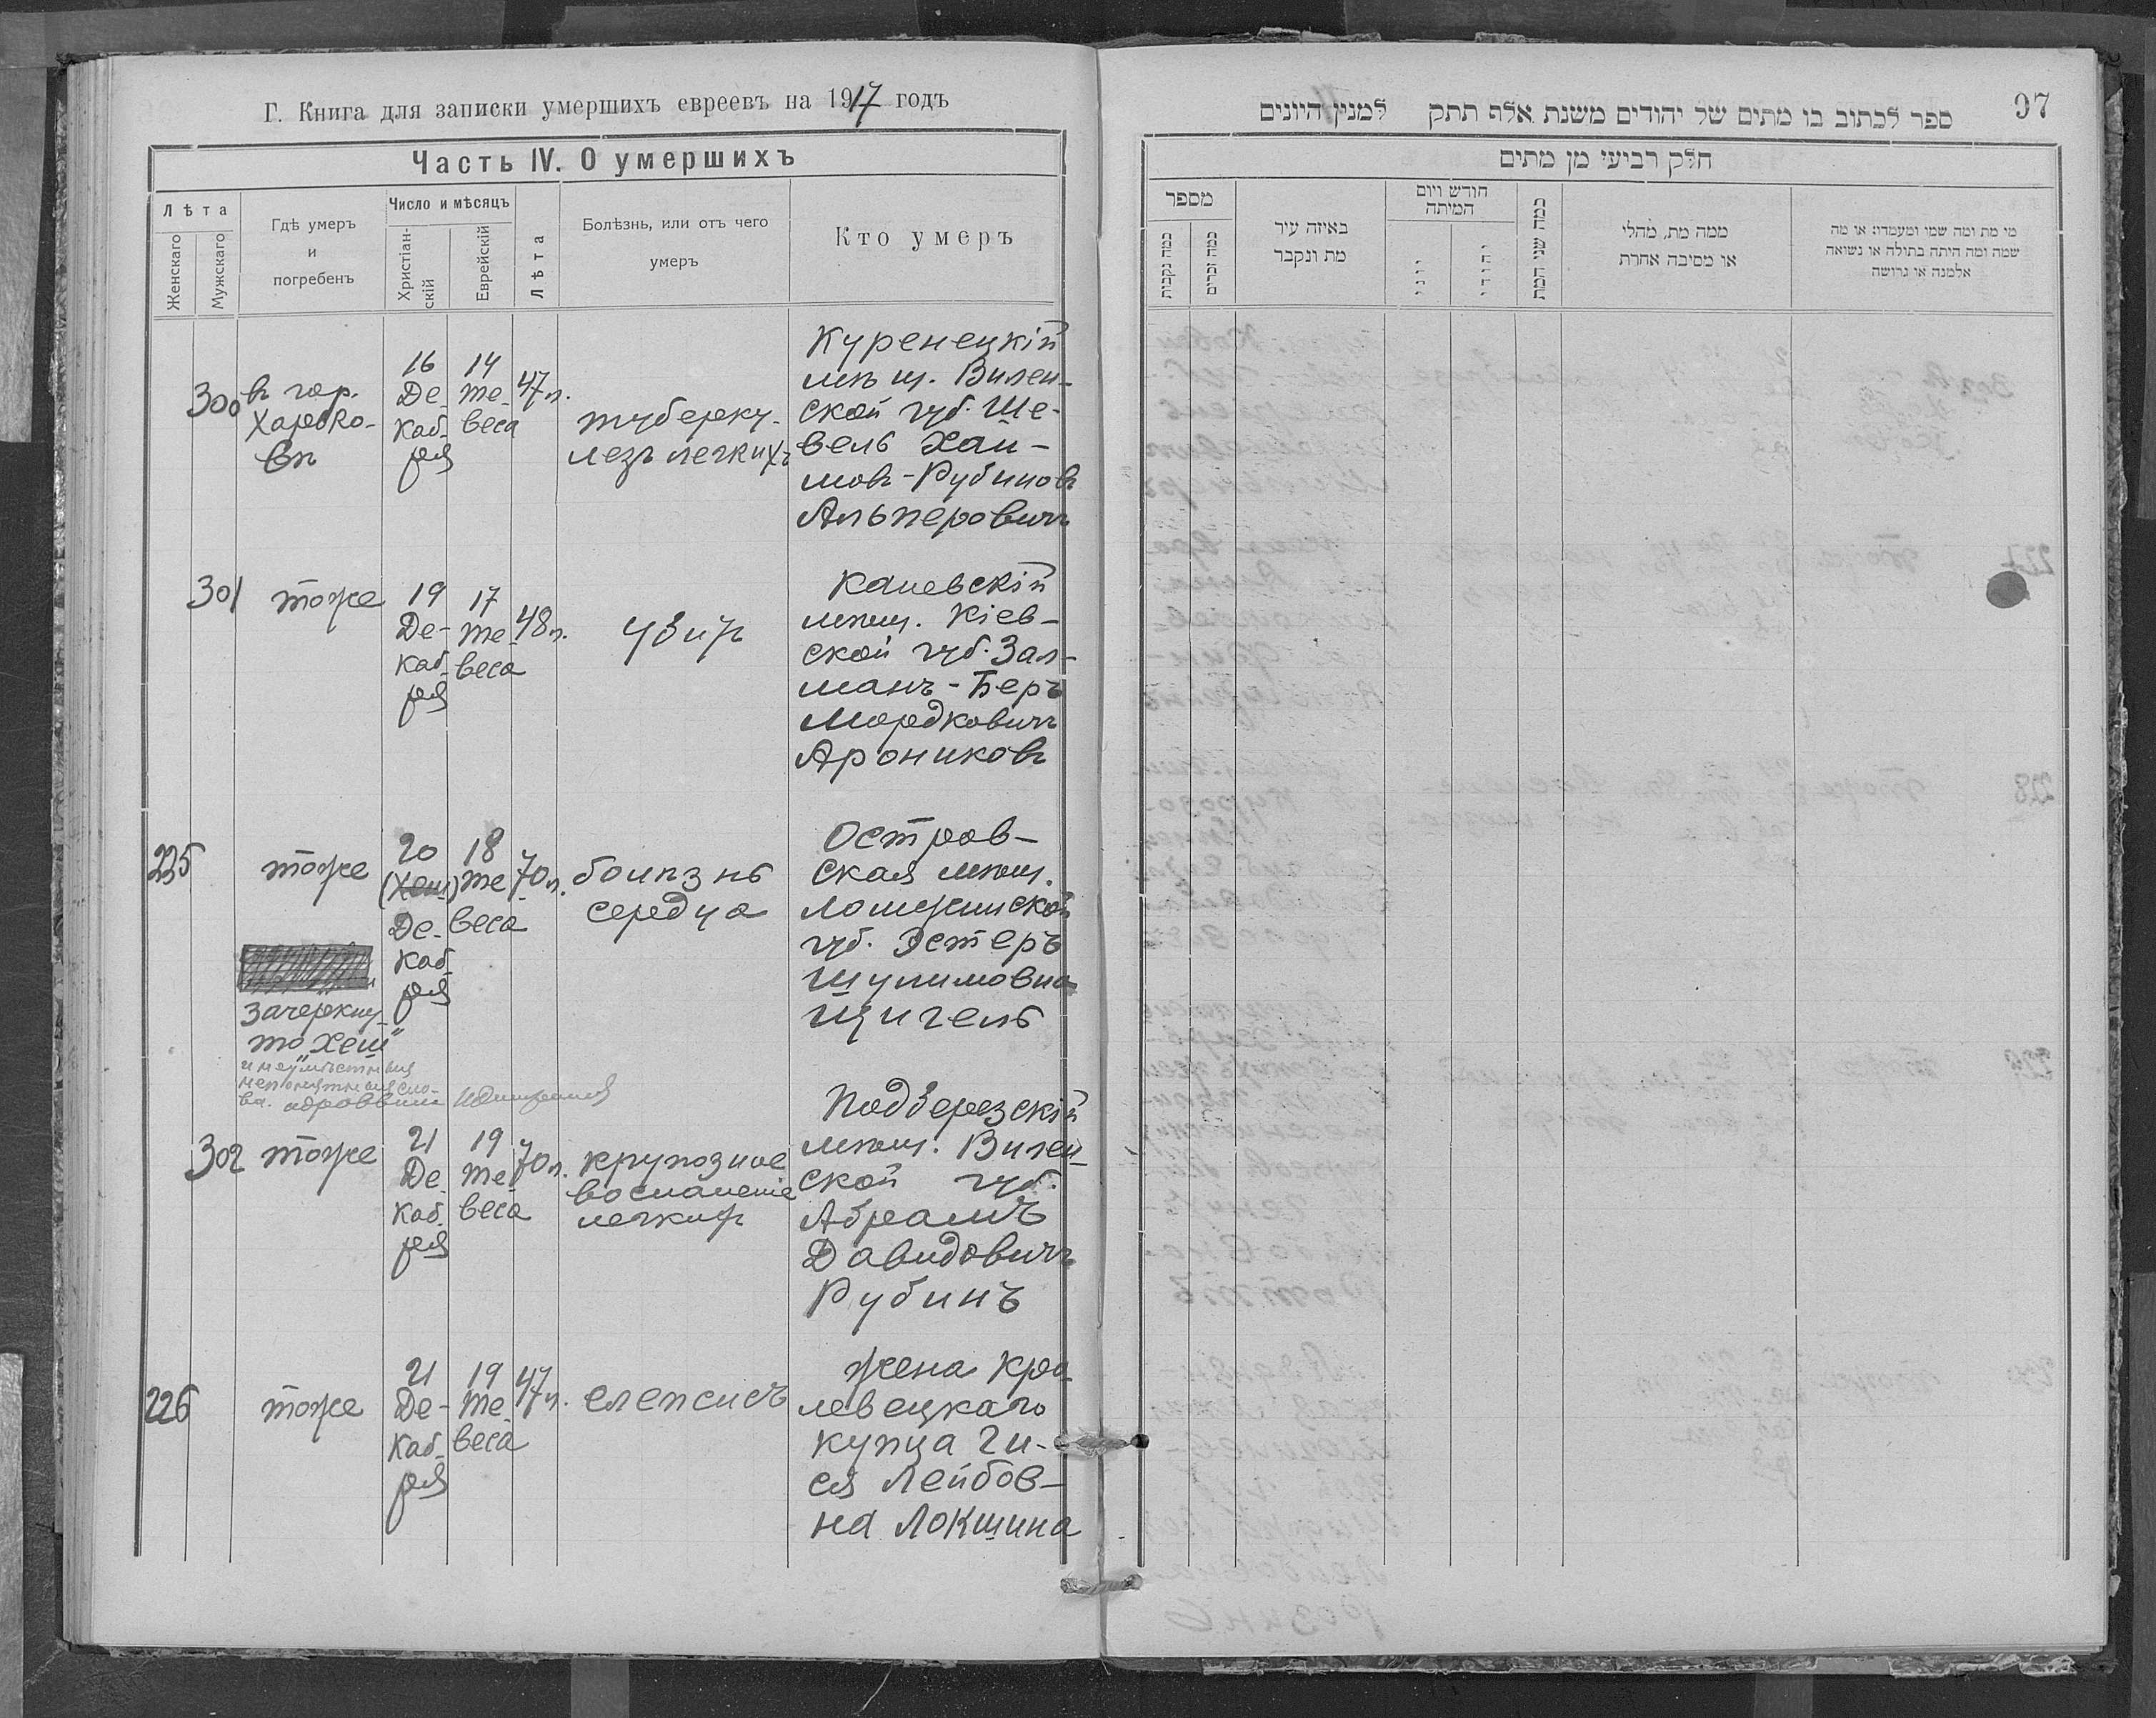 Г. Книга для записки умершихъ евреевъ на 1917 годъ
Часть IV. О умершихъ
Лѣта
Женскаго
Мужскаго
Гдѣ умеръ
и
погребенъ
Число и мѣсяцъ
Христіан-
скій
Еврейскій
Лѣта
Болѣзнь, или отъ чего
умеръ
Кто умеръ
300
въ гор.
Харько-
вѣ
16
Де-
каб-
ря
14
Те-
веса
47 л.
туберку-
лезъ легкихъ
Куренецкій
мѣщ. Вилен-
ской губ. Ше-
вель Хай-
мовъ-Рубиновъ
Альперовичъ
301
тоже
19
Де-
каб-
ря
17
Те-
веса
48 л.
Каневскій
мѣщ. Кіев-
ской губ. Зал-
манъ-Беръ
Мордковичъ
Арониковъ
225
тоже
20
(Хеш)
Де-
каб-
ря
18
Те-
веса
70 л.
болѣзнь
сердца
Остров-
ская мѣщ.
Ломжинской
губ. Эстеръ
Шулимовна
Щигель
зачеркну-
то „хеш"
302
тоже
21
Де-
каб-
ря
19
Те-
веса
70 л.
крупозное
воспаленіе
легкихъ
Подберезскій
мѣщ. Вилен-
ской губ.
Абрамъ
Давидовичъ
Рубинъ
226
тоже
21
Де-
каб-
ря
19
Те-
веса
47 л.
сепсисъ
жена Кро-
левецкаго
купца Ги-
ся Лейбов-
на Локшина
97
ספר לכתוב בו מתים של יהודים משנת אלף תתק למנין היונים
חלק רביעי מן מתים
מספר
כמה נקבות
כמה זכרים
באיזה עיר
מת ונקבר
חודש ויום
המיתה
יוני
יהודי
כמה שני המת
ממה מת, מחלי
או מסיבה אחרת
מי מת ומה שמו ומעמדו: או מה
שמה ומה היתה בתולה או נשואה
אלמנה או גרושה